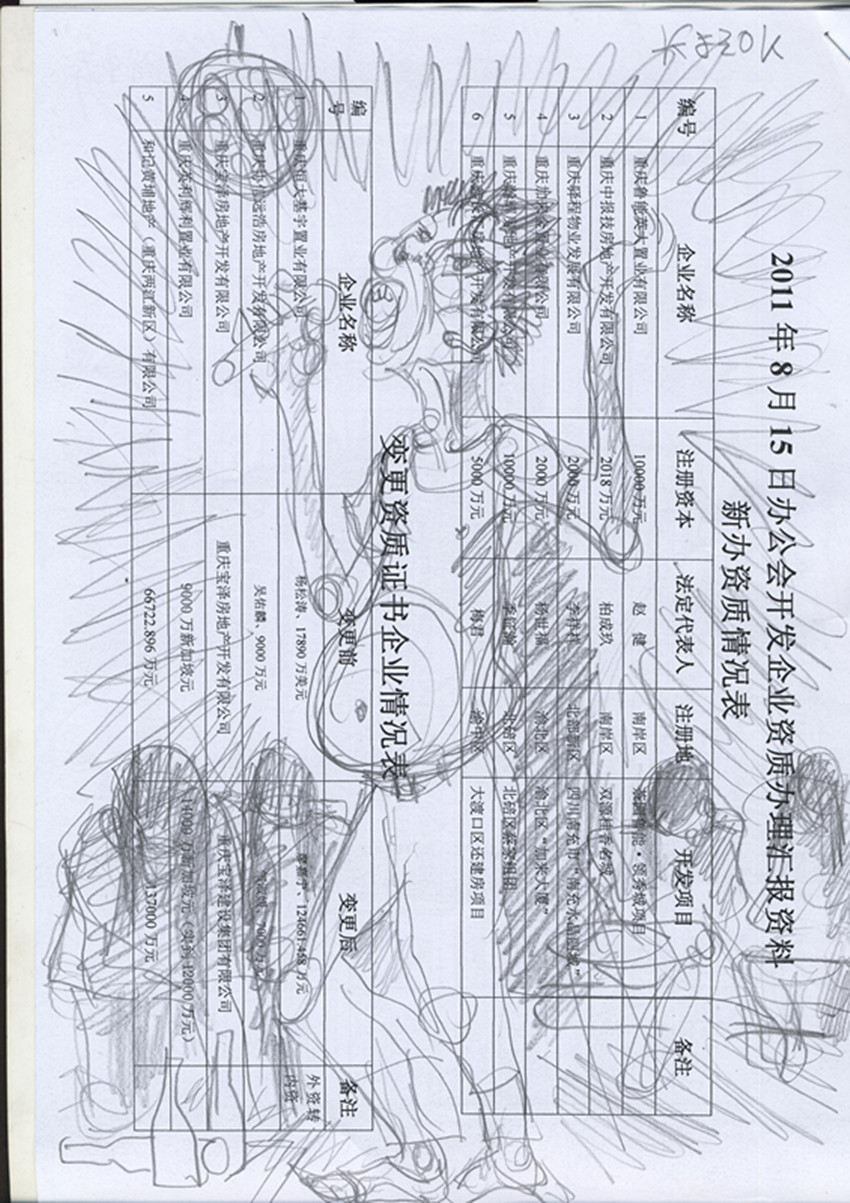 2011 年 8 月 15 日办公会开发企业资质办理汇报资料
新办资质情况表
编号 企业名称 注册资本 法定代表人 注册地 开发项目 备注
1 重庆鲁能英大置业有限公司 10000 万元 赵 健 南岸区 鲁能·领秀城项目
2 重庆中报技房地产开发有限公司 2018 万元 柏成玖 南岸区 双源
3 重庆驿程物业发展有限公司 2000 万元 李祥 北部新区 四川南充市“南充水晶国
4 重庆 有限公司 2000 万元 杨世福 渝北区 渝北区“加来大厦”
5 重庆 房地产开发有限公司 10000 万元 北碚区 北碚
6 重庆 房地产开发有限公司 5000 万元 梅君 渝中区 大渡口区还建房项目
变更资质证书企业情况表
编号 企业名称 变更前 变更后 备注
1 重庆恒大基宇置业有限公司 杨松涛、17890 万美元 124661.438 万元 外资转内资
2 重庆 远浩房地产开发有限公司 吴佑麟、9000 万元
3 重庆宝泽房地产开发有限公司 重庆宝泽房地产开发有限公司 重庆宝泽建设集团有限公司
4 重庆英利辉利置业有限公司 9000 万新加坡元 14000 万新加坡元（实到 12000 万元）
5 和记黄埔地产（重庆两江新区）有限公司 66722.896 万元 137000 万元